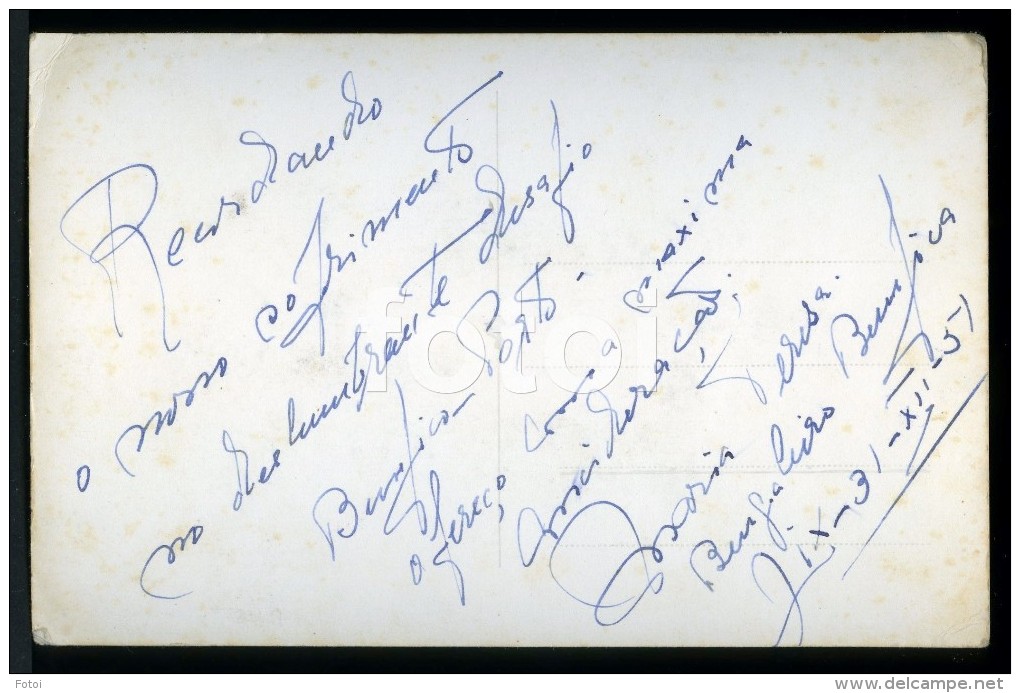 Recordando
o nosso sofrimento
no deslumbrante desafio
Benfica-Porto.
ofereço com a maxima
consideração,
Maria Teresa
Bengaleiro Benfica
LX-31-XII-51
fotoi
Fotoi
delcampe.net